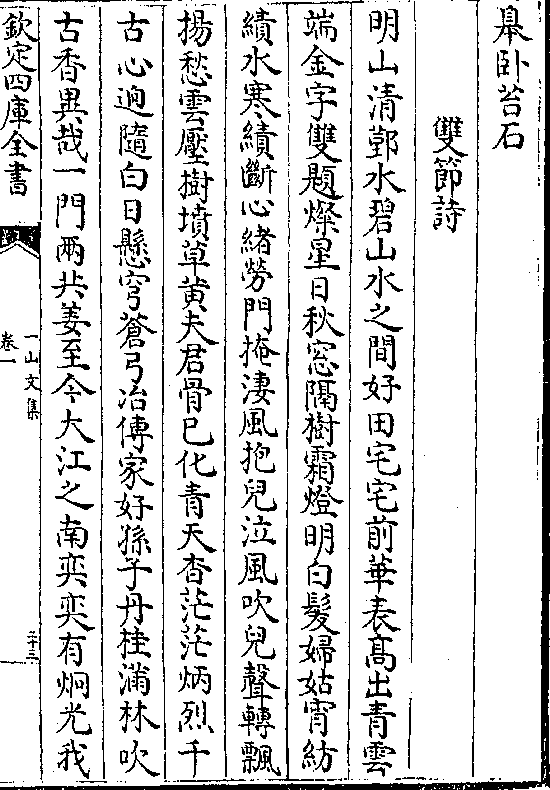 舉卧苔石
雙節詩
明山清鄞水碧山水之間好田宅宅前華表髙出青雲
端金字雙題燦星日秋窓隔樹霜燈明白髪婦姑宵紡
績水寒績斷心緒勞門掩淒風抱兒泣風吹兒聲轉飄
揚愁雲壓樹墳草黄夫君骨已化青天杳茫茫炳烈千
古心逈隨白日懸穹蒼弓冶傳家好孫子丹桂滿林吹
古香異哉一門兩共姜至今大江之南奕奕有炯光我
欽定四庫全書
一山文集
卷一
二十三